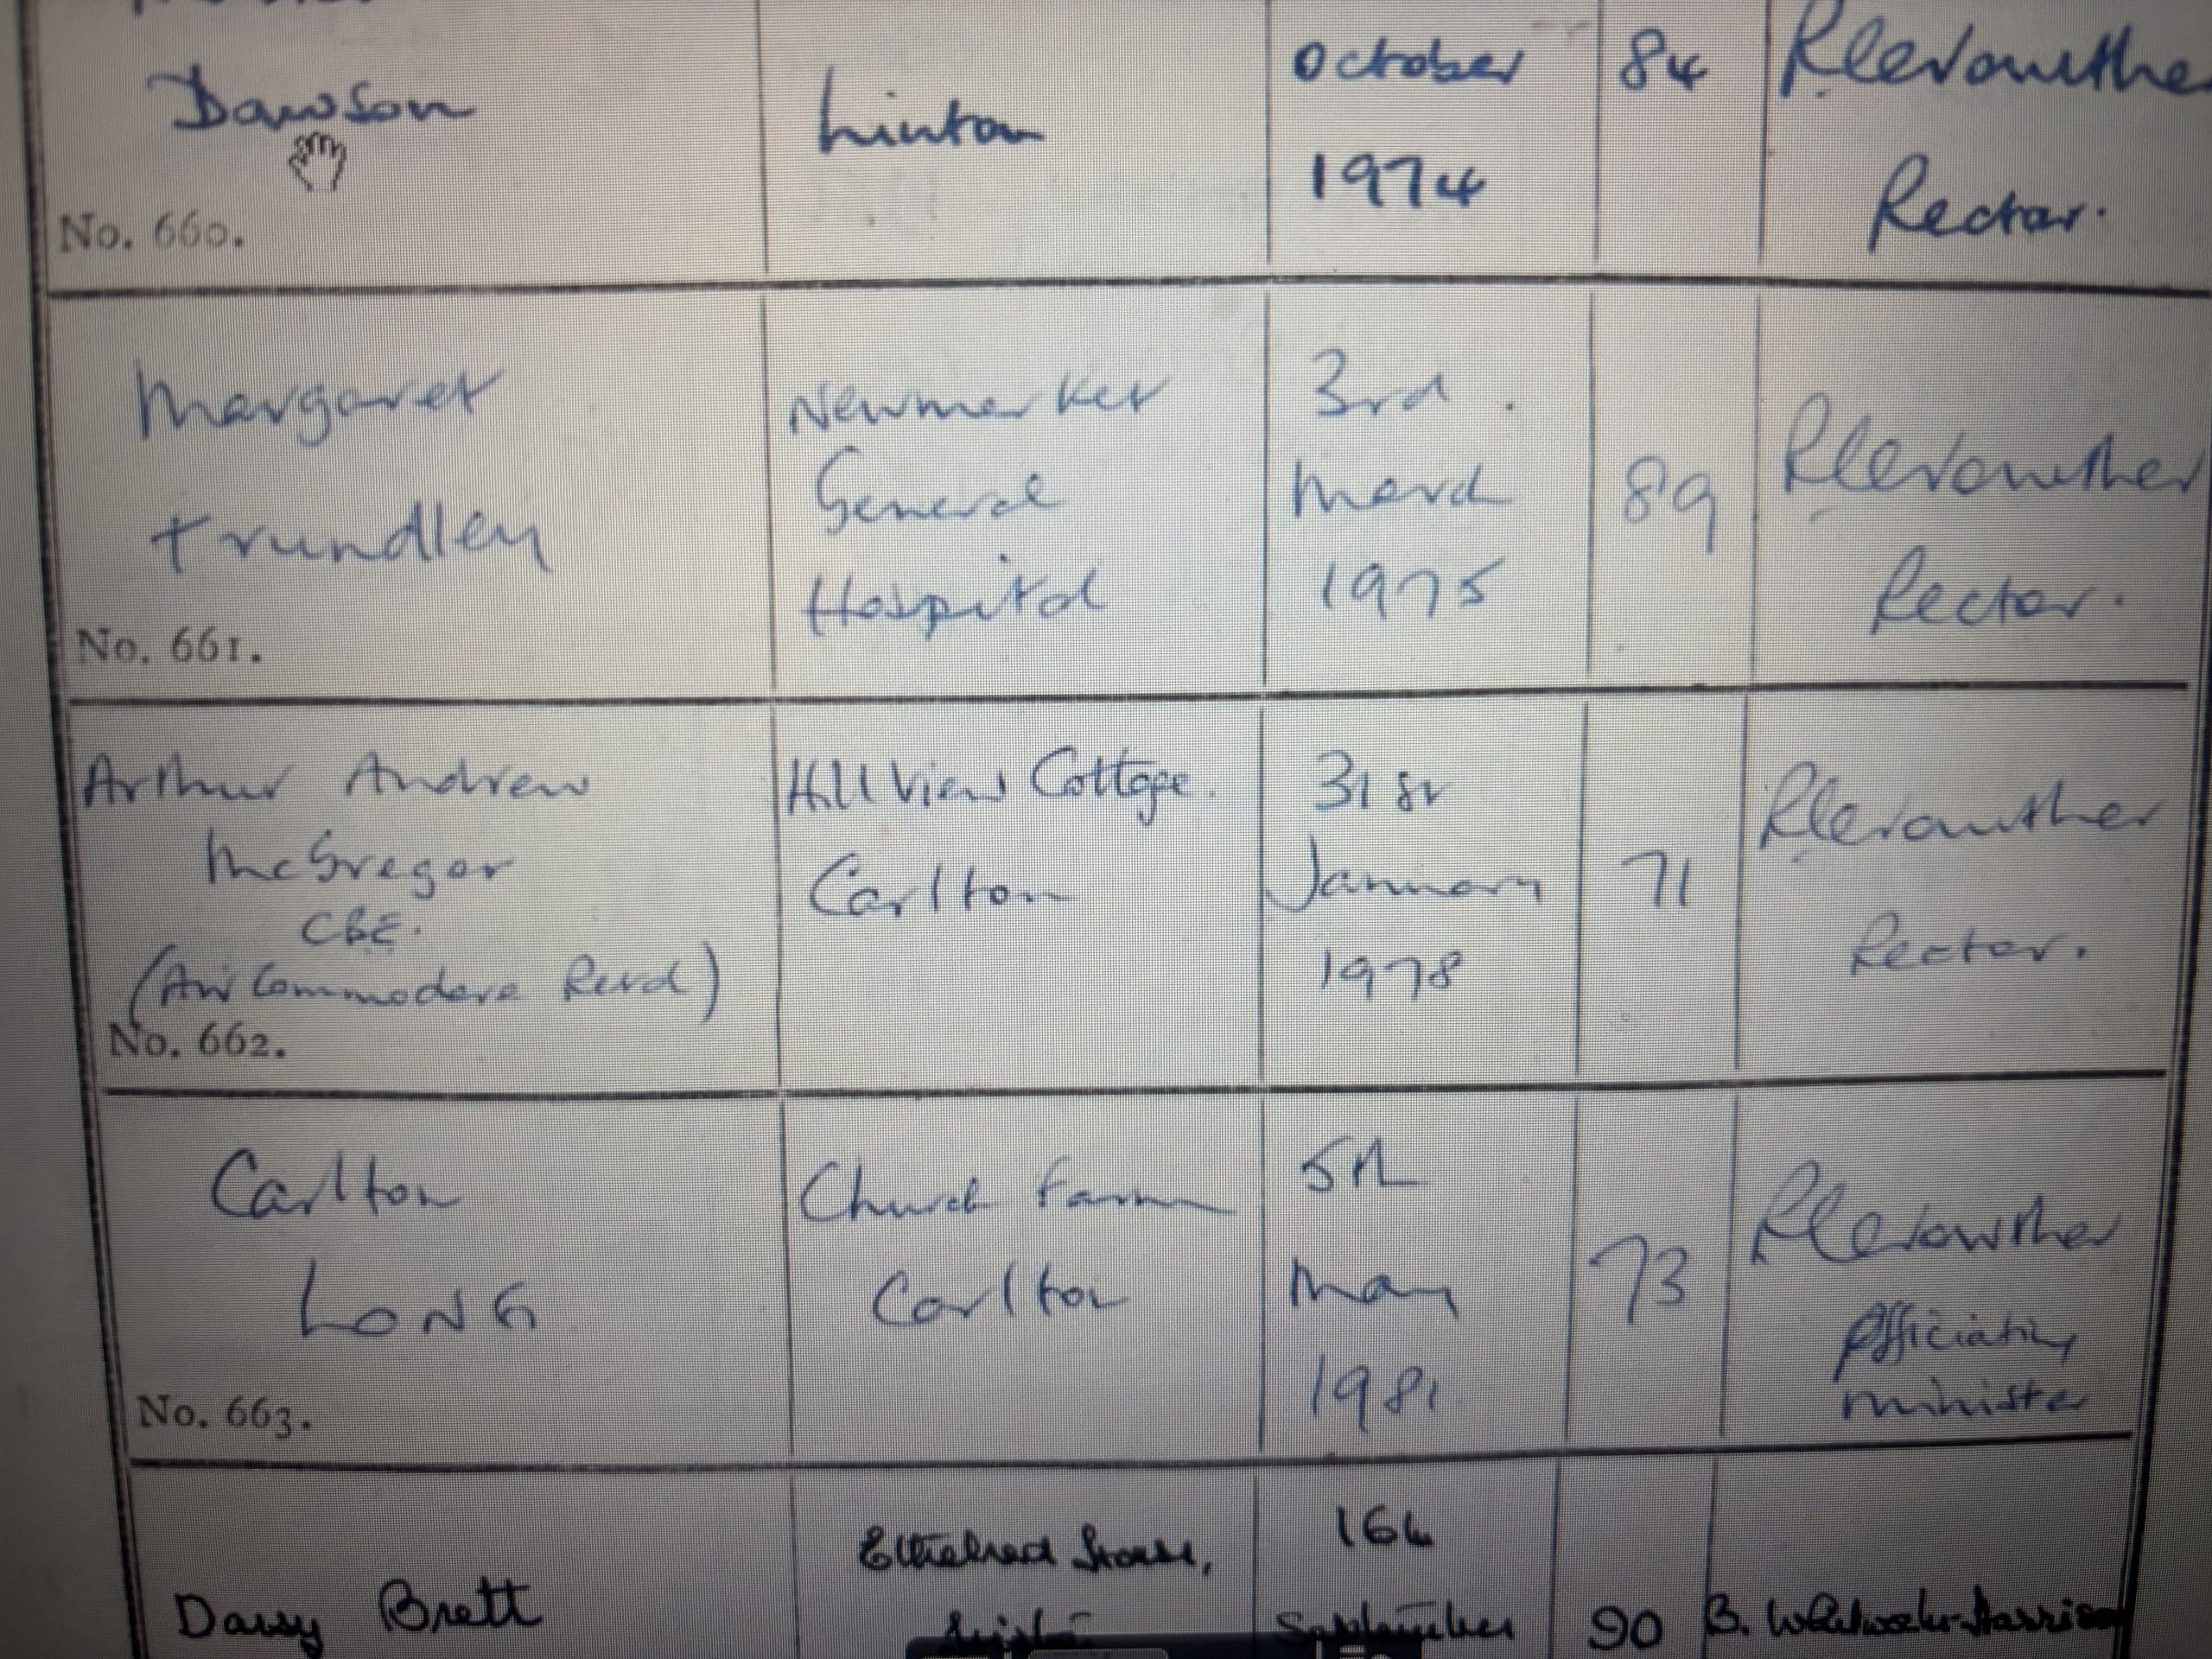 Dawson
Linton
October
1974
84
Rector.
No. 660.
Margaret
Trundley
Newmarket
General
Hospital
3rd
March
1975
89
Rector.
No. 661.
Arthur Andrew
McGregor
CBE.
(Air Commodore Retd)
Hill View Cottage.
Carlton
31st
January
1978
71
Rector.
No. 662.
Carlton
LONG
Church Farm
Carlton
5th
May
1981
73
Officiating
minister
No. 663.
Daisy Brett
16th
September
90
B.